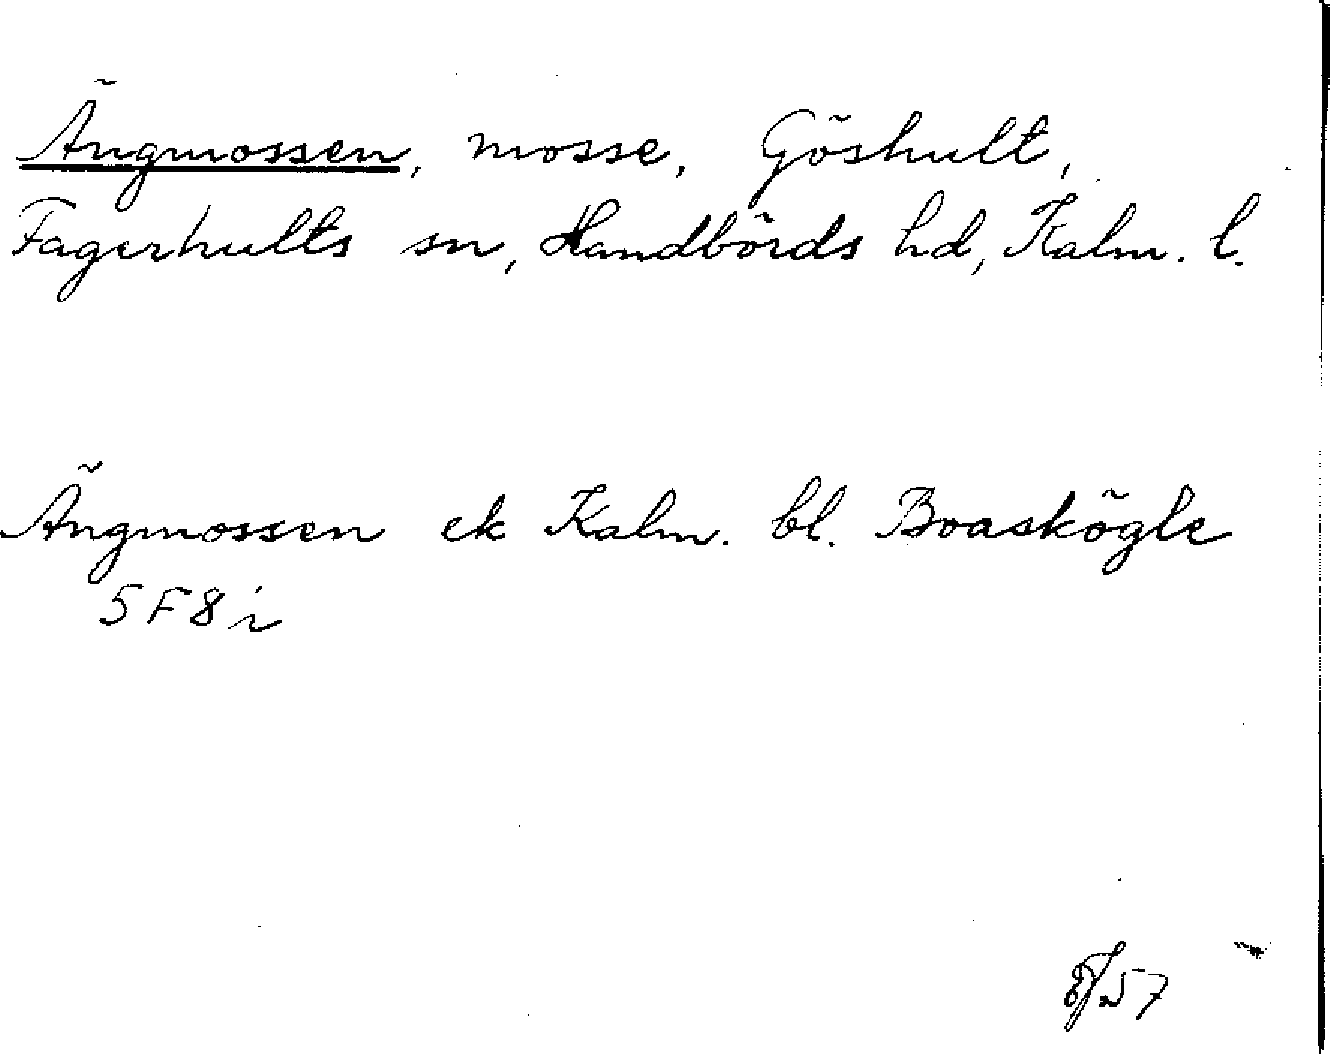 Ängmossen, mosse, Göshult,
Fagerhults sn, Handbörds hd, Kalm. l.
Ängmossen ek Kalm. bl. Boaskögle
5F8i
57